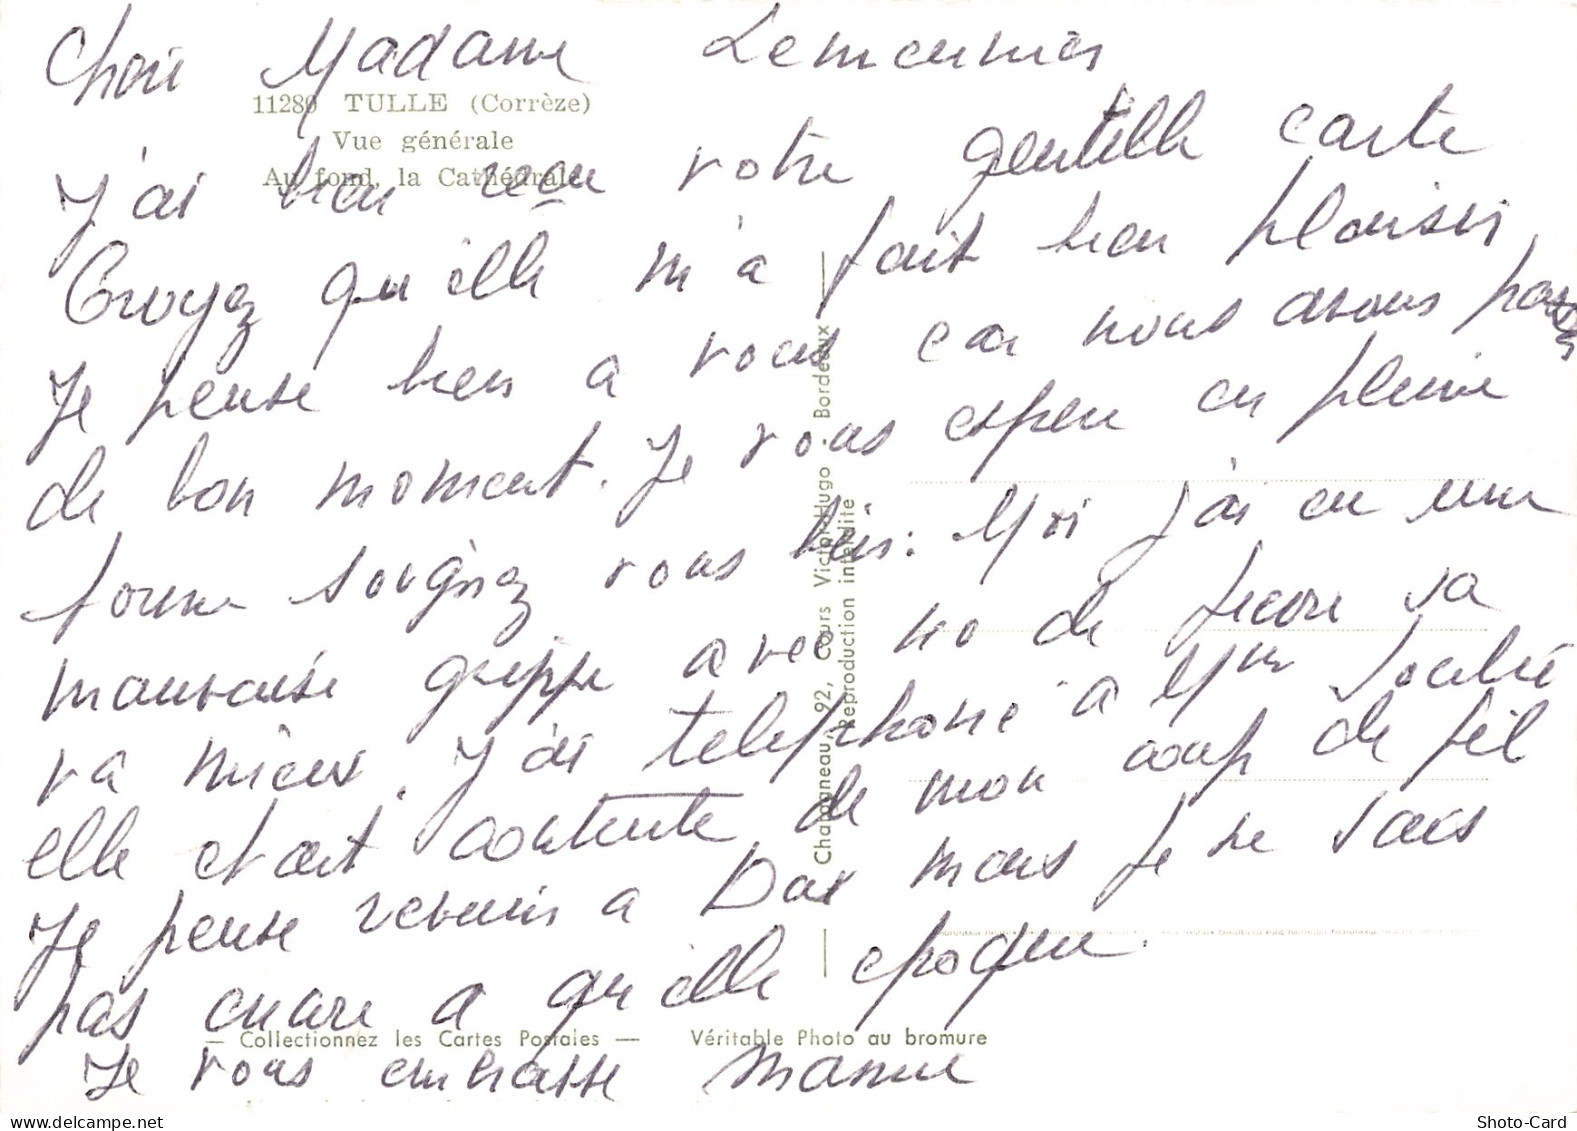 Chere Madame Lemeunier
11280 TULLE (Corrèze)
Vue générale
Au fond, la Cathédrale
J'ai bien recu votre gentille carte
Croyez qu'elle m'a fait bien plaisir,
Je pense bien a vous car nous avons passé
de bon moment. Je vous espere en pleine
forme soignez vous bien. Moi j'ai eu une
mauvaise grippe avec de sa
va mieux. J'ai telephoné a Mme
elle etait contente de mon coup de fil
Je pense revenir a Dax mais je ne sais
pas encore a qu'elle epoque.
Je vous embrasse
Champneau, 92, Cours Victor-Hugo - Bordeaux
Reproduction interdite
— Collectionnez les Cartes Postales — Véritable Photo au bromure
www.delcampe.net
Shoto-Card